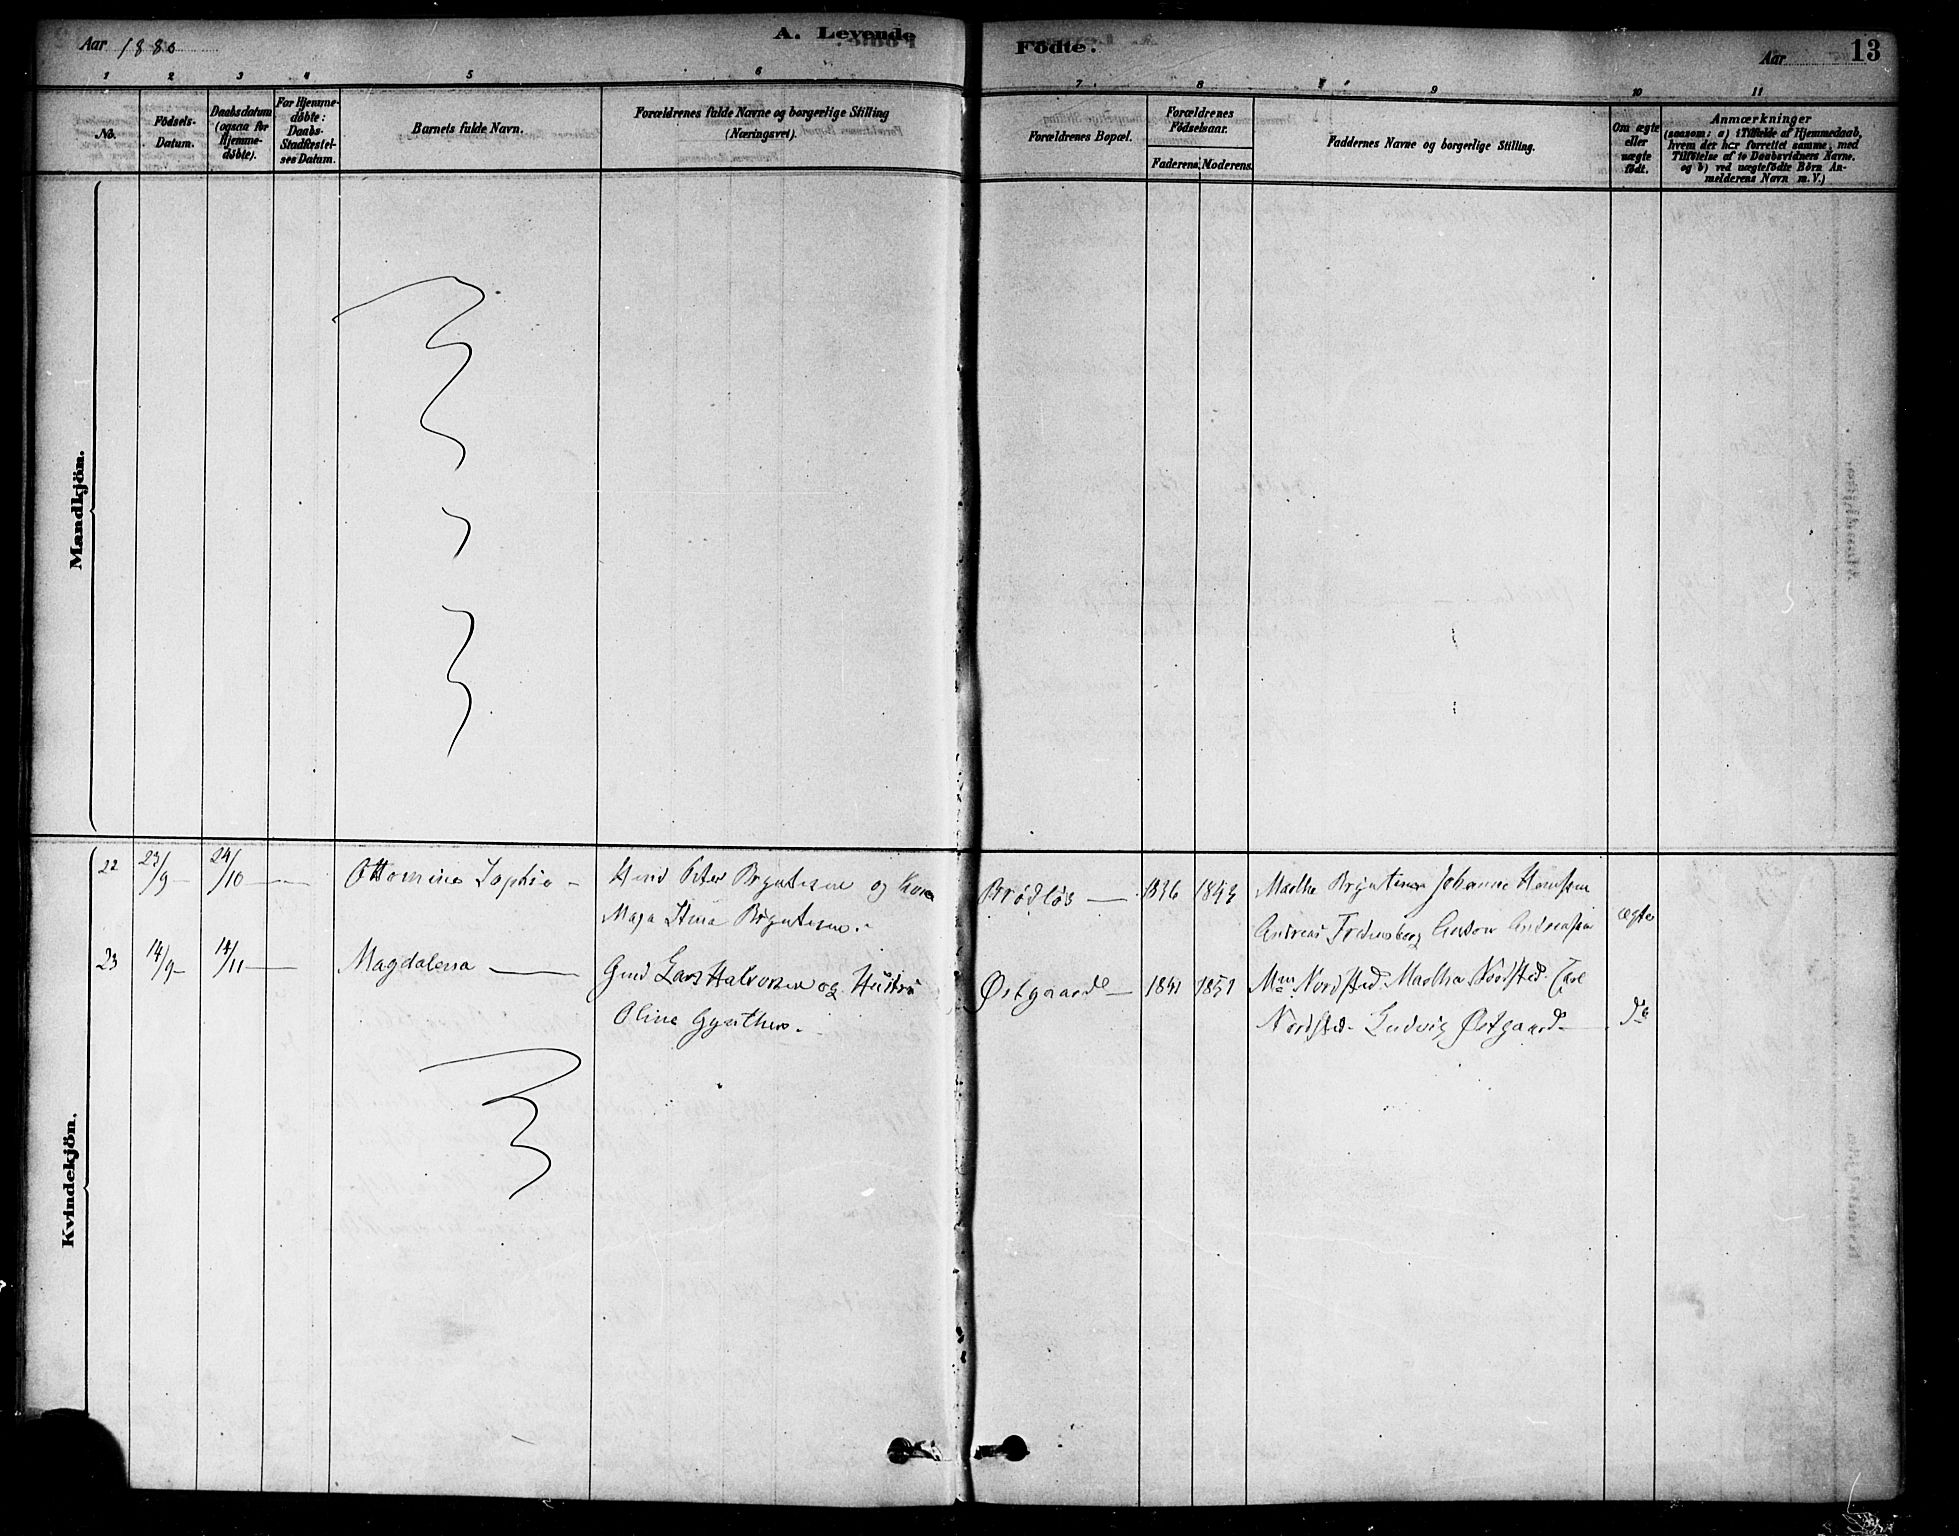 Aar 1880
A. Levende
Födte.
Aar
13
1 2 3 4 5 6 7 8 9 10 11
No.
Födsels-
Datum.
Daabsdatum
(ogsaa for
Hjemme-
döbte).
For Hjemme-
döbte:
Daabs-
Stadfæstel-
ses Datum.
Barnets fulde Navn.
Forældrenes fulde Navne og borgerlige Stilling
(Næringsvei).
Forældrenes Bopæl.
Forældrenes
Födselsaar.
Faderens.
Moderens.
Faddernes Navne og borgerlige Stilling.
Om ægte
eller
uægte
födt.
Anmærkninger
(saasom: a) i Tilfælde af Hjemmedaab,
hvem der har forrettet samme, med
Tilföielse af to Daabsvidners Navne.
og b) ved uægtefödte Börn An-
melderens Navn m. V.)
Mandkjön.
Kvindekjön.
22 23/9 24/10 Ottomine Sophie Peter Bryntesen og Kone Brødløs 1836 1843 Johanne
Maja Stina Bryntesen. Andreas Anton ægte
23 14/9 14/11 Magdalena Lars Halvorsen og Hustru Østgaard 1841 1851 Nordsted Nordsted Carl
Oline Nordsted Ludvig Østgaard do